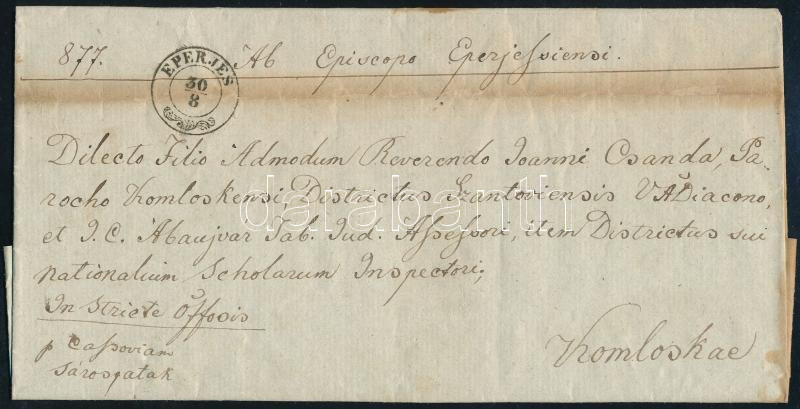 877. Ab Episcopo Eperjessiensi.
EPERJES
30
8
Dilecto Filio Admodum Reverendo Joanni Csanda, Pa-
rocho Komloskensi, Districtus Szantoviensis VADiacono,
et I. C. Abaujvar Tab. Jud. Assessori, item Districtus sui
nationalium Scholarum Inspectori;
In Stricte Offosis
p Cassoviam
Sárospatak
Komloskae
darabanth